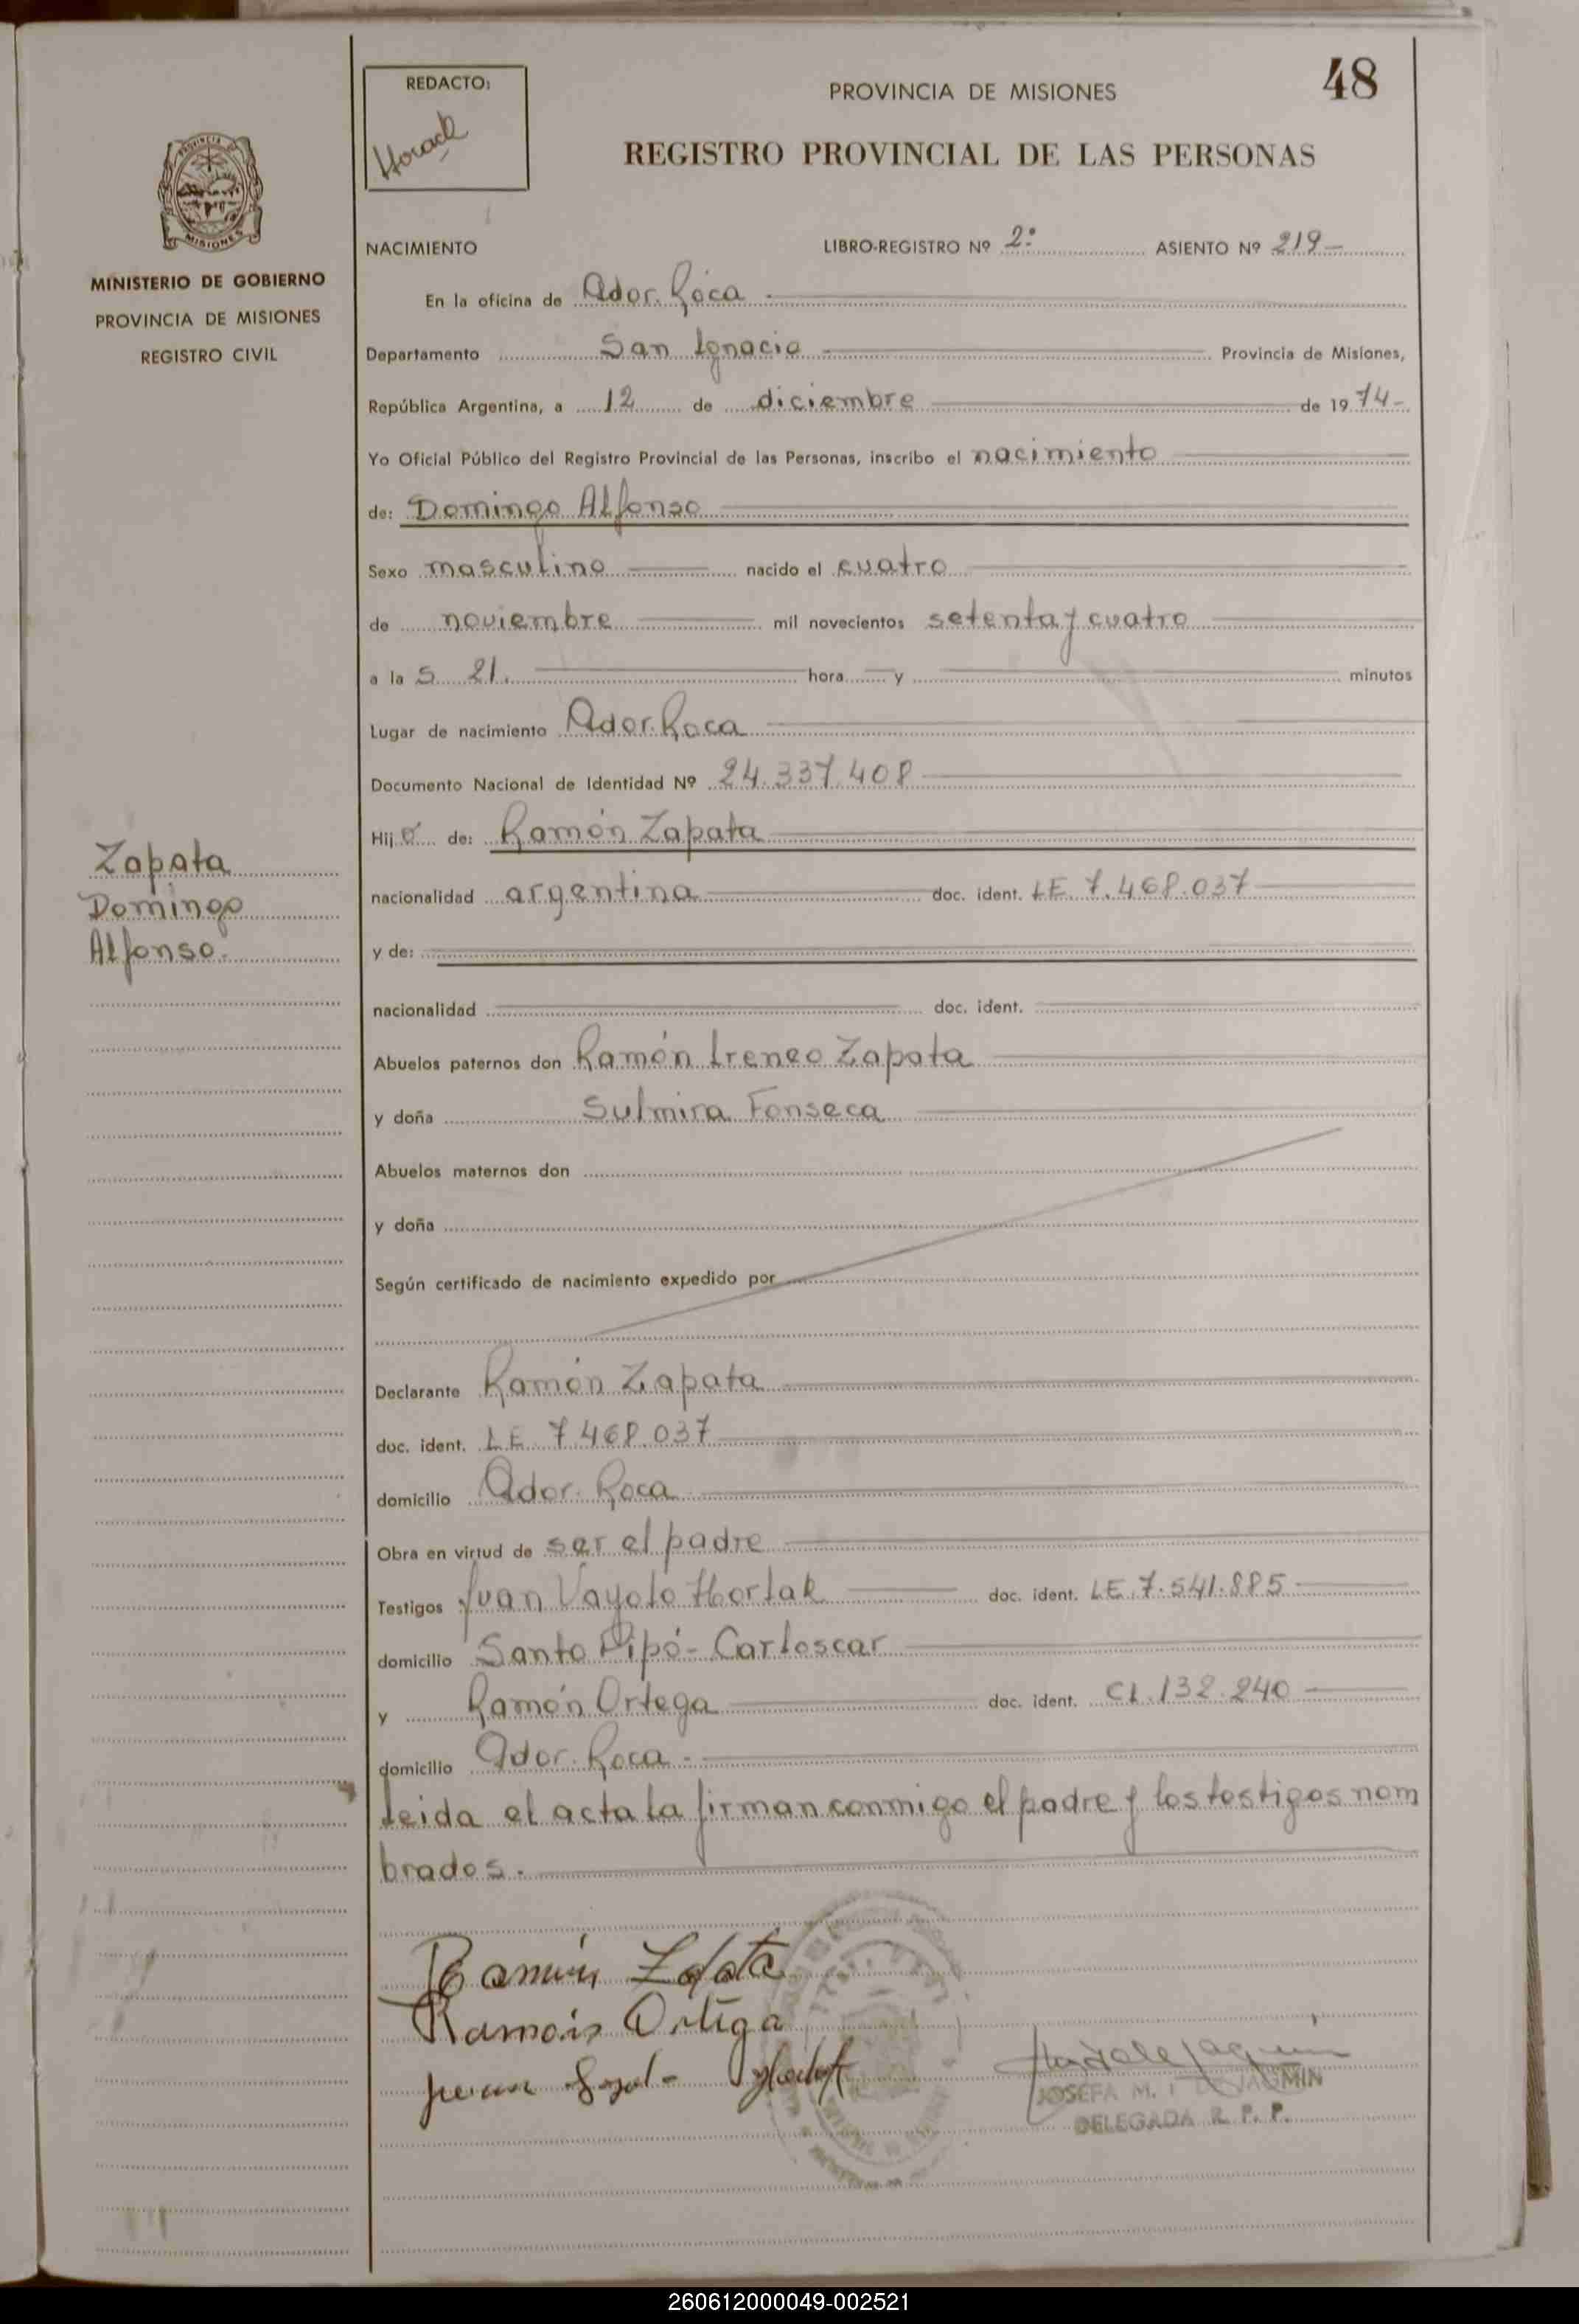 48
REDACTO:
Horack
PROVINCIA DE MISIONES
REGISTRO PROVINCIAL DE LAS PERSONAS
PROVINCIA
MISIONES
MINISTERIO DE GOBIERNO
PROVINCIA DE MISIONES
REGISTRO CIVIL
NACIMIENTO LIBRO-REGISTRO Nº 2º ASIENTO Nº 219
En la oficina de Ador. Roca
Departamento San Ignacio Provincia de Misiones,
República Argentina, a 12 de diciembre de 1974
Yo Oficial Público del Registro Provincial de las Personas, inscribo el nacimiento
de: Domingo Alfonso
Sexo masculino nacido el cuatro
de noviembre mil novecientos setenta y cuatro
a la s 21. hora y minutos
Lugar de nacimiento Ador. Roca
Documento Nacional de Identidad Nº 24.337.408
Hijo de: Ramón Zapata
Zapata
Domingo
Alfonso.
nacionalidad argentina doc. ident. LE. 7.468.037
y de:
nacionalidad doc. ident.
Abuelos paternos don Ramón Ireneo Zapata
y doña Sulmira Fonseca
Abuelos maternos don
y doña
Según certificado de nacimiento expedido por
Declarante Ramón Zapata
doc. ident. LE 7.468.037
domicilio Ador. Roca
Obra en virtud de ser el padre
Testigos Juan Vayolo Horlak doc. ident. LE. 7.541.885
domicilio Santo Pipó - Carloscar
y Ramón Ortega doc. ident. CI. 132.240
domicilio Ador. Roca
Leida el acta la firman conmigo el padre y los testigos nom
brados.
Ramón Zapata
Ramón Ortega
Juan
JOSEFA M.
DELEGADA R. P. P.
260612000049-002521